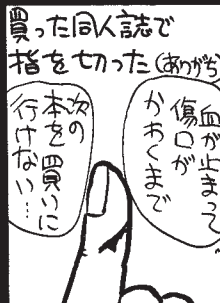 買った同人誌で
指を切った(ありがち)
血が止まって、
傷口が
かわくまで
次の
本を買いに
行けない…